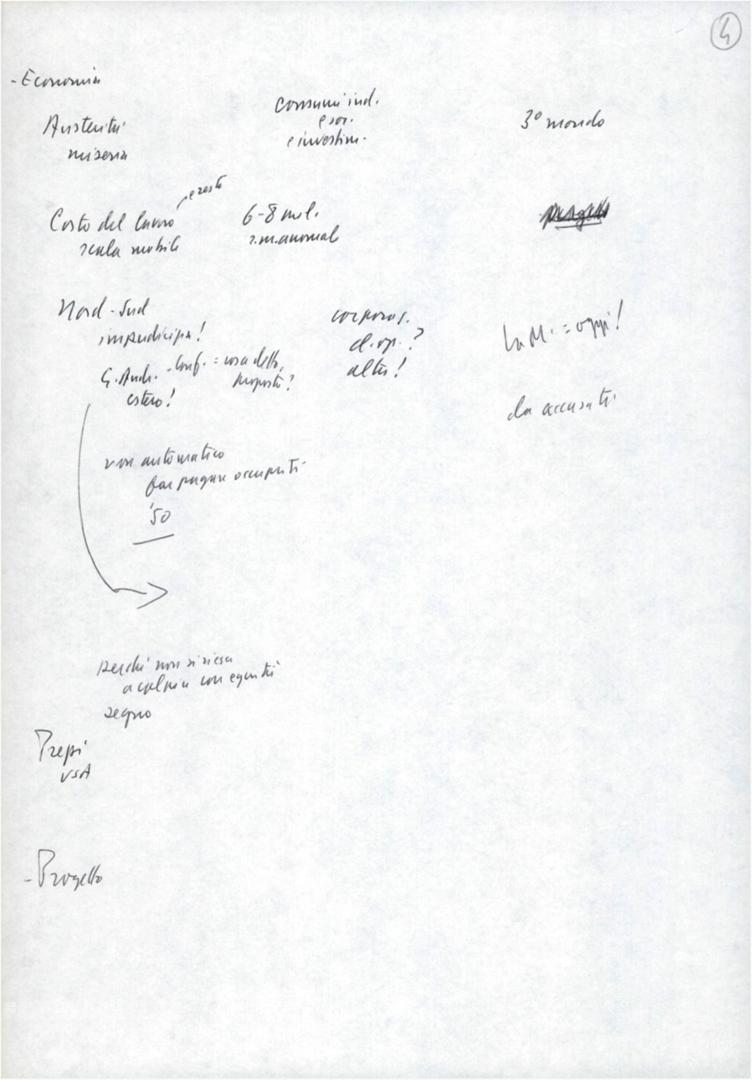 4
- Economia
Austerità
miseria
consumi ind.
e soc.
e investim.
3° mondo
Costo del lavoro
e resto
scala mobile
6-8 mil.
Nord-Sud
G. And. - Conf. = cosa detto,
proposta?
estero!
corporas.
cl. op.?
altri!
La M. = oggi!
da accusati
non automatico
far pagare occupati
'50
perché non si riesce
a colpire con equità
segno
Prezzi
USA
- Progetto